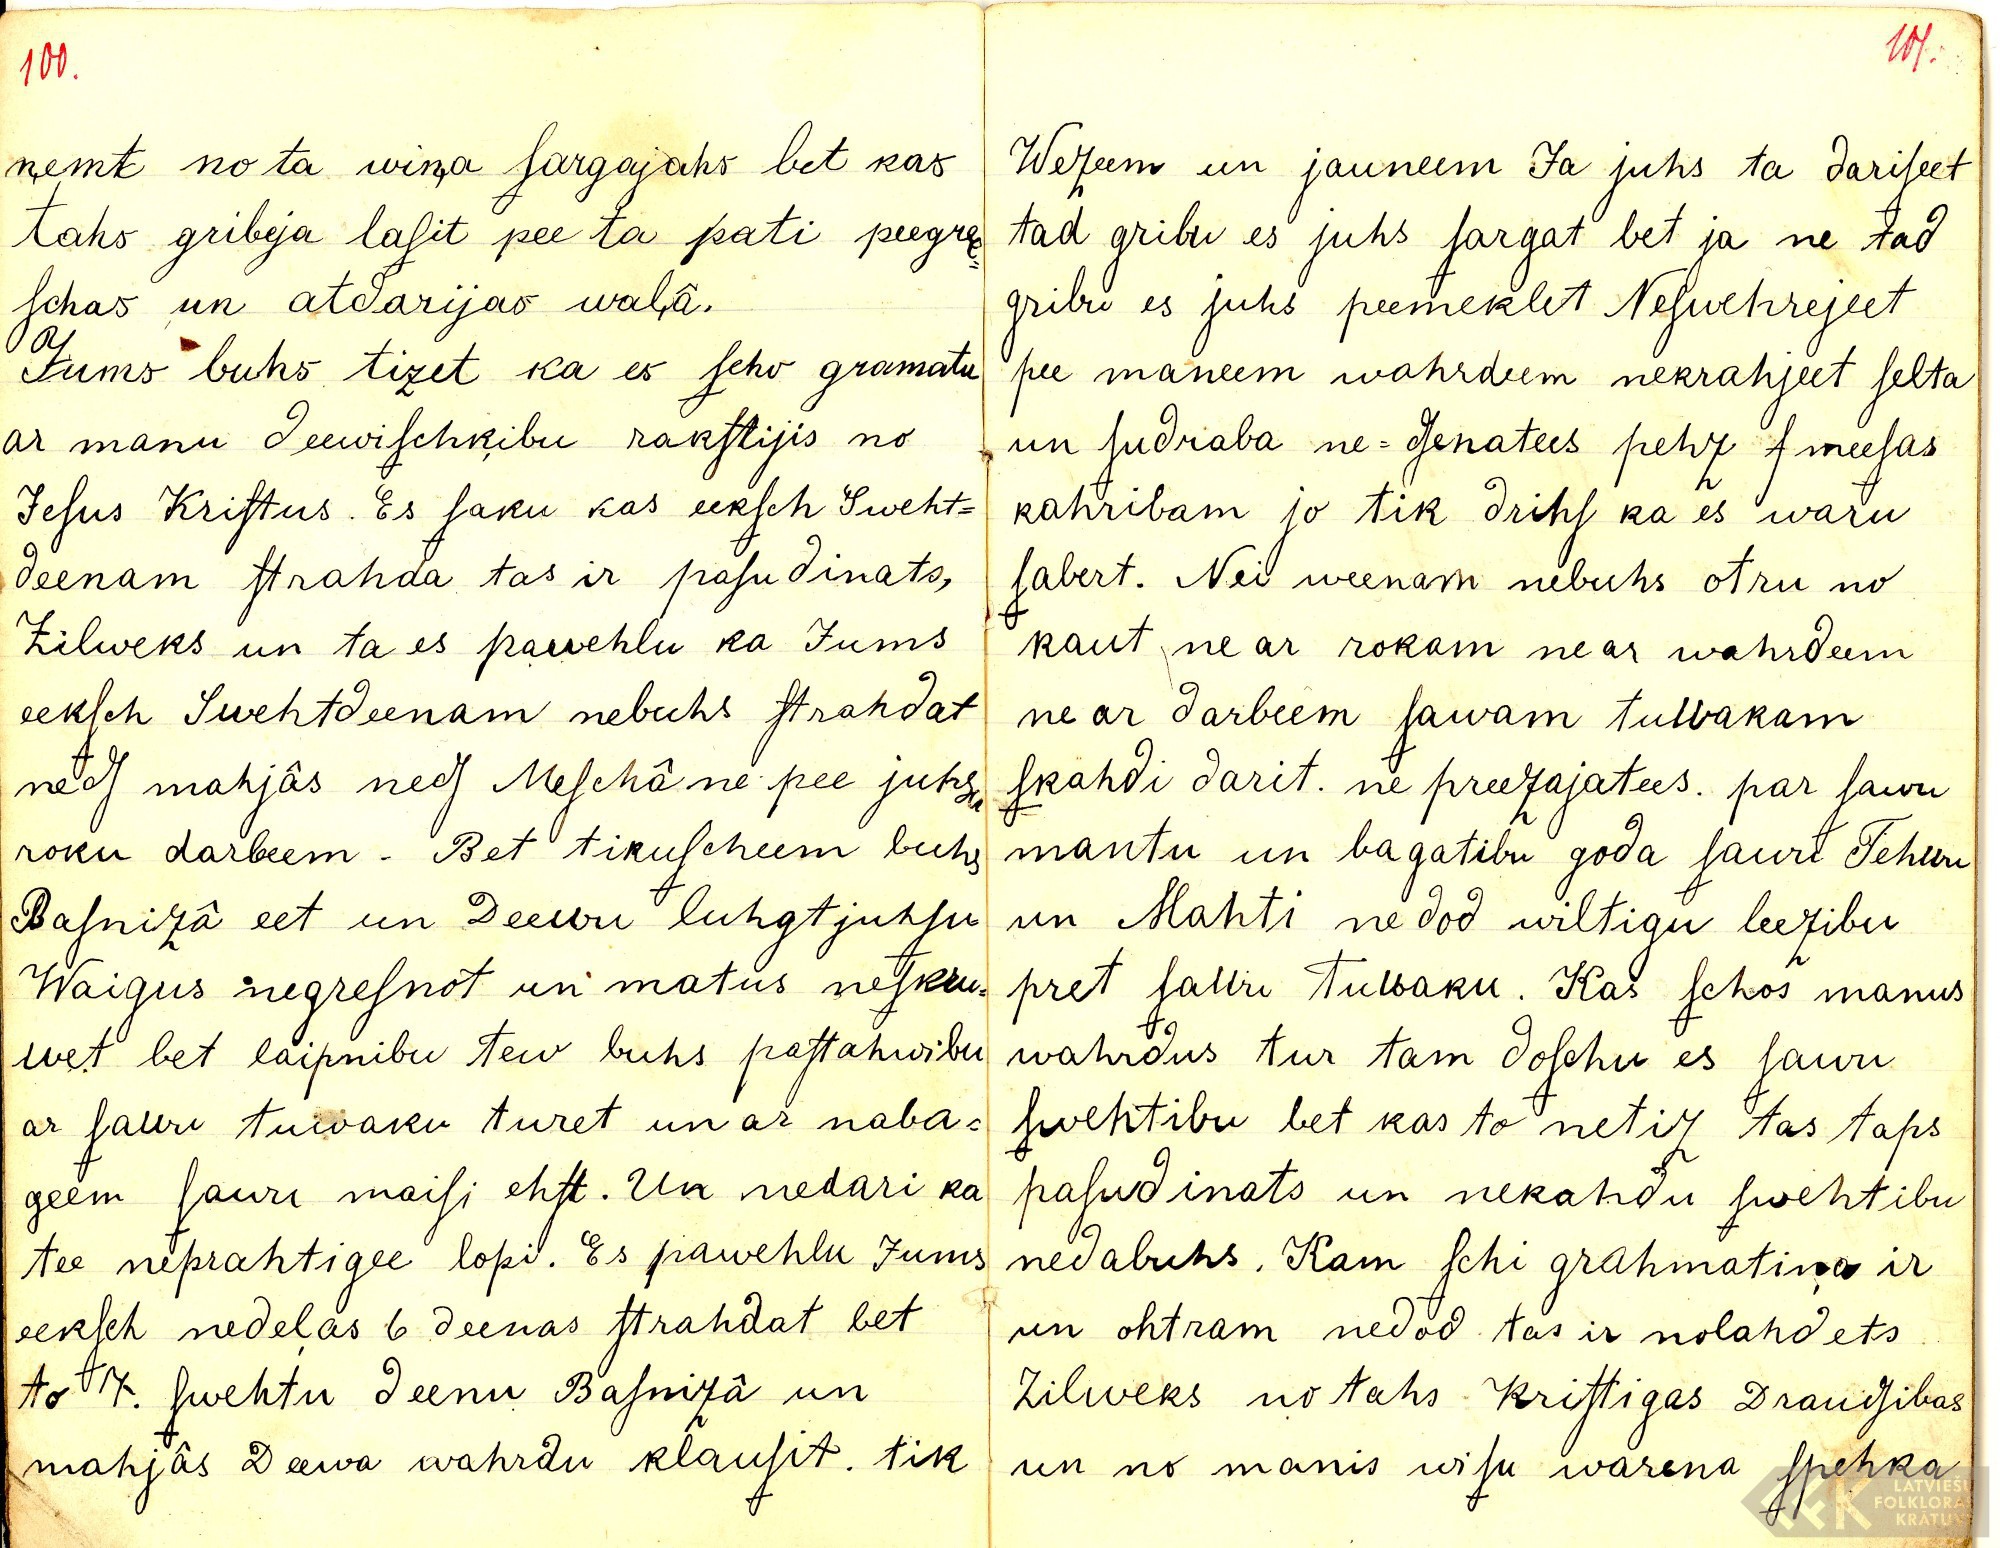 100.
ņemt no ta wiņa ſargajahs bet kas
tahs gribēja laſit pee ta pati peegrę=
ſchas un atdarijas waļâ.
Jums buhs tizet ka es ſcho gramatu
ar manu deewiſchķibu rakſtijis no
Jeſus Kriſtus. Es ſaku kas eekſch Sweht=
deenam ſtrahda tas ir paſudinats,
Zilweks un ta es pawehlu ka Jums
eekſch Swehtdeenam nebuhs ſtrahdat
nedſ mahjâs nedſ Meſchâ ne pee juhſu
roku darbeem - Bet tikuſcheem buhs
Baſnizâ eet un Deewu luhgt juhſu
Waigus negreſnot un matus neſkru=
wet bet laipnibu tew buhs paſtahwibu
ar ſawu tuwaku turet un ar naba=
geem ſawu maiſi ehſt. Un nedari ka
tee neprahtigee lopi. Es pawehlu Jums
eekſch nedeļas 6 deenas ſtrahdat bet
to 7. ſwehtu deenu Baſnizâ un
mahjâs Deewa wahrdu klauſit. tik
101.
Wezeem un jauneem Ja juhs ta dariſeet
tad gribu es juhs ſargat bet ja ne tad
gribu es juhs peemeklet Neſwehrejeet
pee maneem wahrdeem nekrahjeet ſelta
un ſudraba ne=dſenatees pehz ſ meeſas
kahribam jo tik drihſ ka es waru
ſabert. Nei weenam nebuhs otru no
kaut ne ar rokam ne ar wahrdeem
ne ar darbeem ſawam tuwakam
ſkahdi darit. ne preezajatees. par ſawu
mantu un bagatibu goda ſawu Tehwu
un Mahti ne dod wiltigu leezibu
pret ſawu tuwaku. Kas ſchos manus
wahrdus tur tam doſchu es ſawu
ſwehtibu bet kas to netiz tas taps
paſudinats un nekahdu ſwehtibu
nedabuhs. Kam ſchi grahmatiņa ir
un ohtram nedod tas ir nolahdets
Zilweks no tahs Kriſtigas Draudſibas
un no manis wiſu warena ſpehka
LATVIEŠU
FOLKLORAS
KRĀTUVE